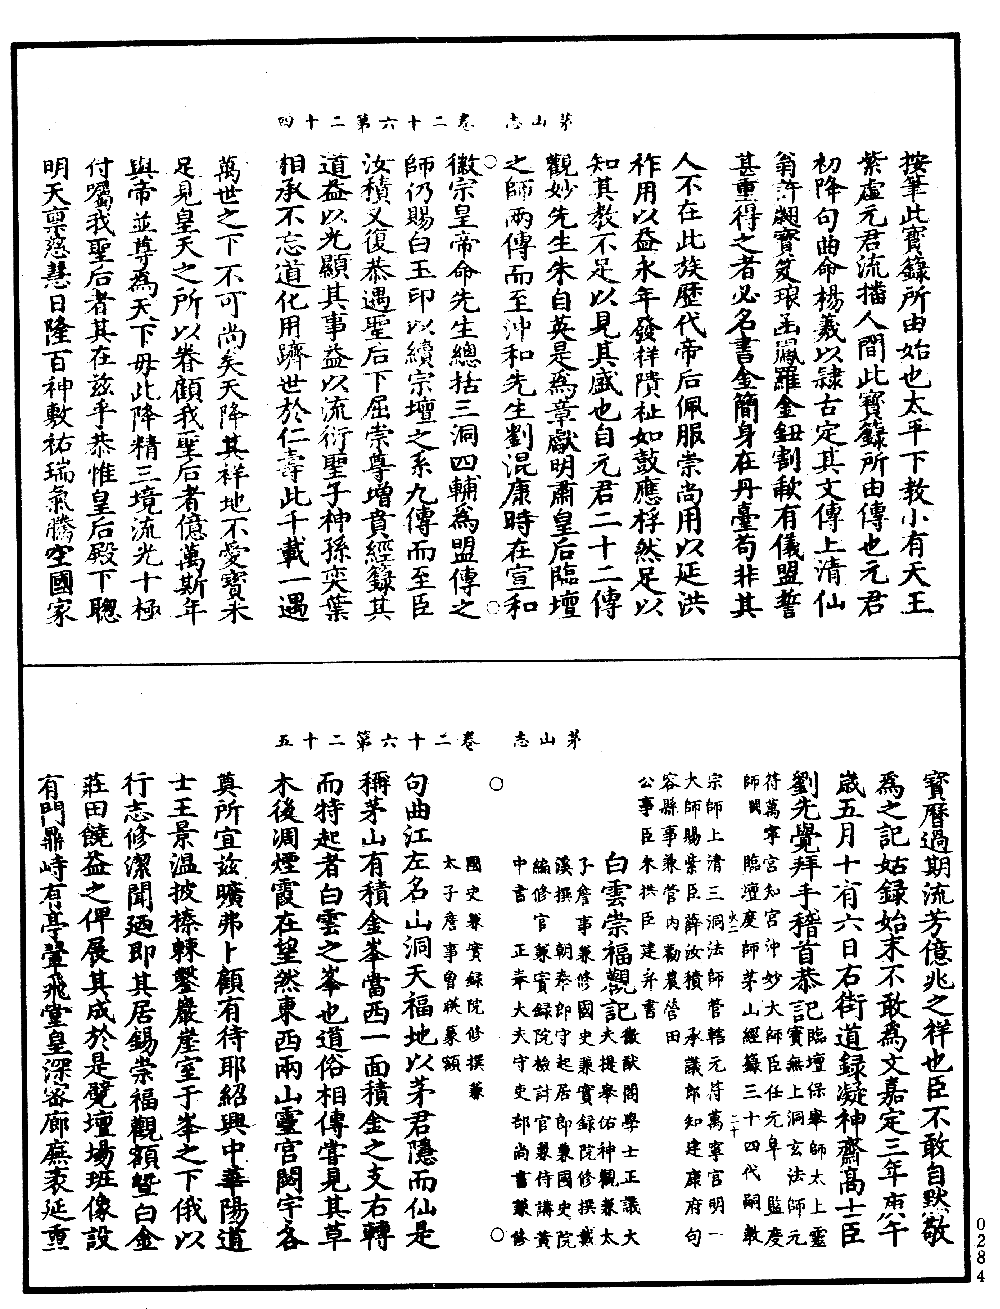 按筆此寶籙所由始也太平下教小有天王
紫虛元君流播人間此寶籙所由傳也元君
初降句曲命楊羲以隸古定其文傳上清仙
翁許翽寶笈琅函鳳羅金鈕割歃有儀盟誓
甚重得之者必名書金簡身在丹臺苟非其
人不在此族歷代帝后佩服崇尚用以延洪
祚用以益永年發祥隤祉如鼓應桴然足以
知其教不足以見其盛也自元君二十二傳
觀妙先生朱自英是為章獻明肅皇后臨壇
之師兩傳而至沖和先生劉混康時在宣和
徽宗皇帝命先生總括三洞四輔為盟傳之
師仍賜白玉印以續宗壇之系九傳而至臣
汝積又復恭遇聖后下屈崇尊增賁經籙其
道益以光顯其事益以流衍聖子神孫奕葉
相承不忘道化用躋世於仁壽此千載一遇
茅山志 卷二十六第二十四
萬世之下不可尚矣天降其祥地不愛寶未
足見皇天之所以眷顧我聖后者億萬斯年
與帝並尊為天下母此降精三境流光十極
付囑我聖后者其在茲乎恭惟皇后殿下聰
明天稟慈慧日隆百神敷祐瑞氣騰空國家
寶曆過期流芳億兆之祥也臣不敢自默敬
為之記姑錄始末不敢為文嘉定三年庚午
歲五月十有六日右街道錄凝神齋高士臣
劉先覺拜手稽首恭記
臨壇保舉師太上靈
寶無上洞玄法師元
符萬寧宮知宮沖妙大師臣任元阜 監度
師闕 臨壇度師茅山經籙三十四代嗣教
宗師上清三洞法師管轄元符萬寧宮明一
大師賜紫臣薛汝積 承議郎知建康府句
容縣事兼管內勸農營田
公事臣朱拱臣建并書
白雲崇福觀記
徽猷閣學士正議大
夫提舉佑神觀兼太
子詹事兼修國史兼實錄院修撰戴
溪撰 朝奉郎守起居郎兼國史院
編修官兼實錄院檢討官兼侍講黃
中書 正奉大夫守吏部尚書兼修
國史兼實錄院修撰兼
太子詹事曾㬇篆額
句曲江左名山洞天福地以茅君隱而仙是
稱茅山有積金峯當西一面積金之支右轉
而特起者白雲之峯也道俗相傳嘗見其草
木後凋煙霞在望然東西兩山靈宮闕宇各
茅山志 卷二十六第二十五
奠所宜茲曠弗卜顧有待耶紹興中華陽道
士王景溫披榛棘鑿巖崖室于峯之下俄以
行志修潔聞廼即其居錫崇福觀額暨白金
莊田饒益之俾展其成於是甓壇場班像設
有門鼎峙有亭翬飛堂皇深密廊廡袤延重
0284